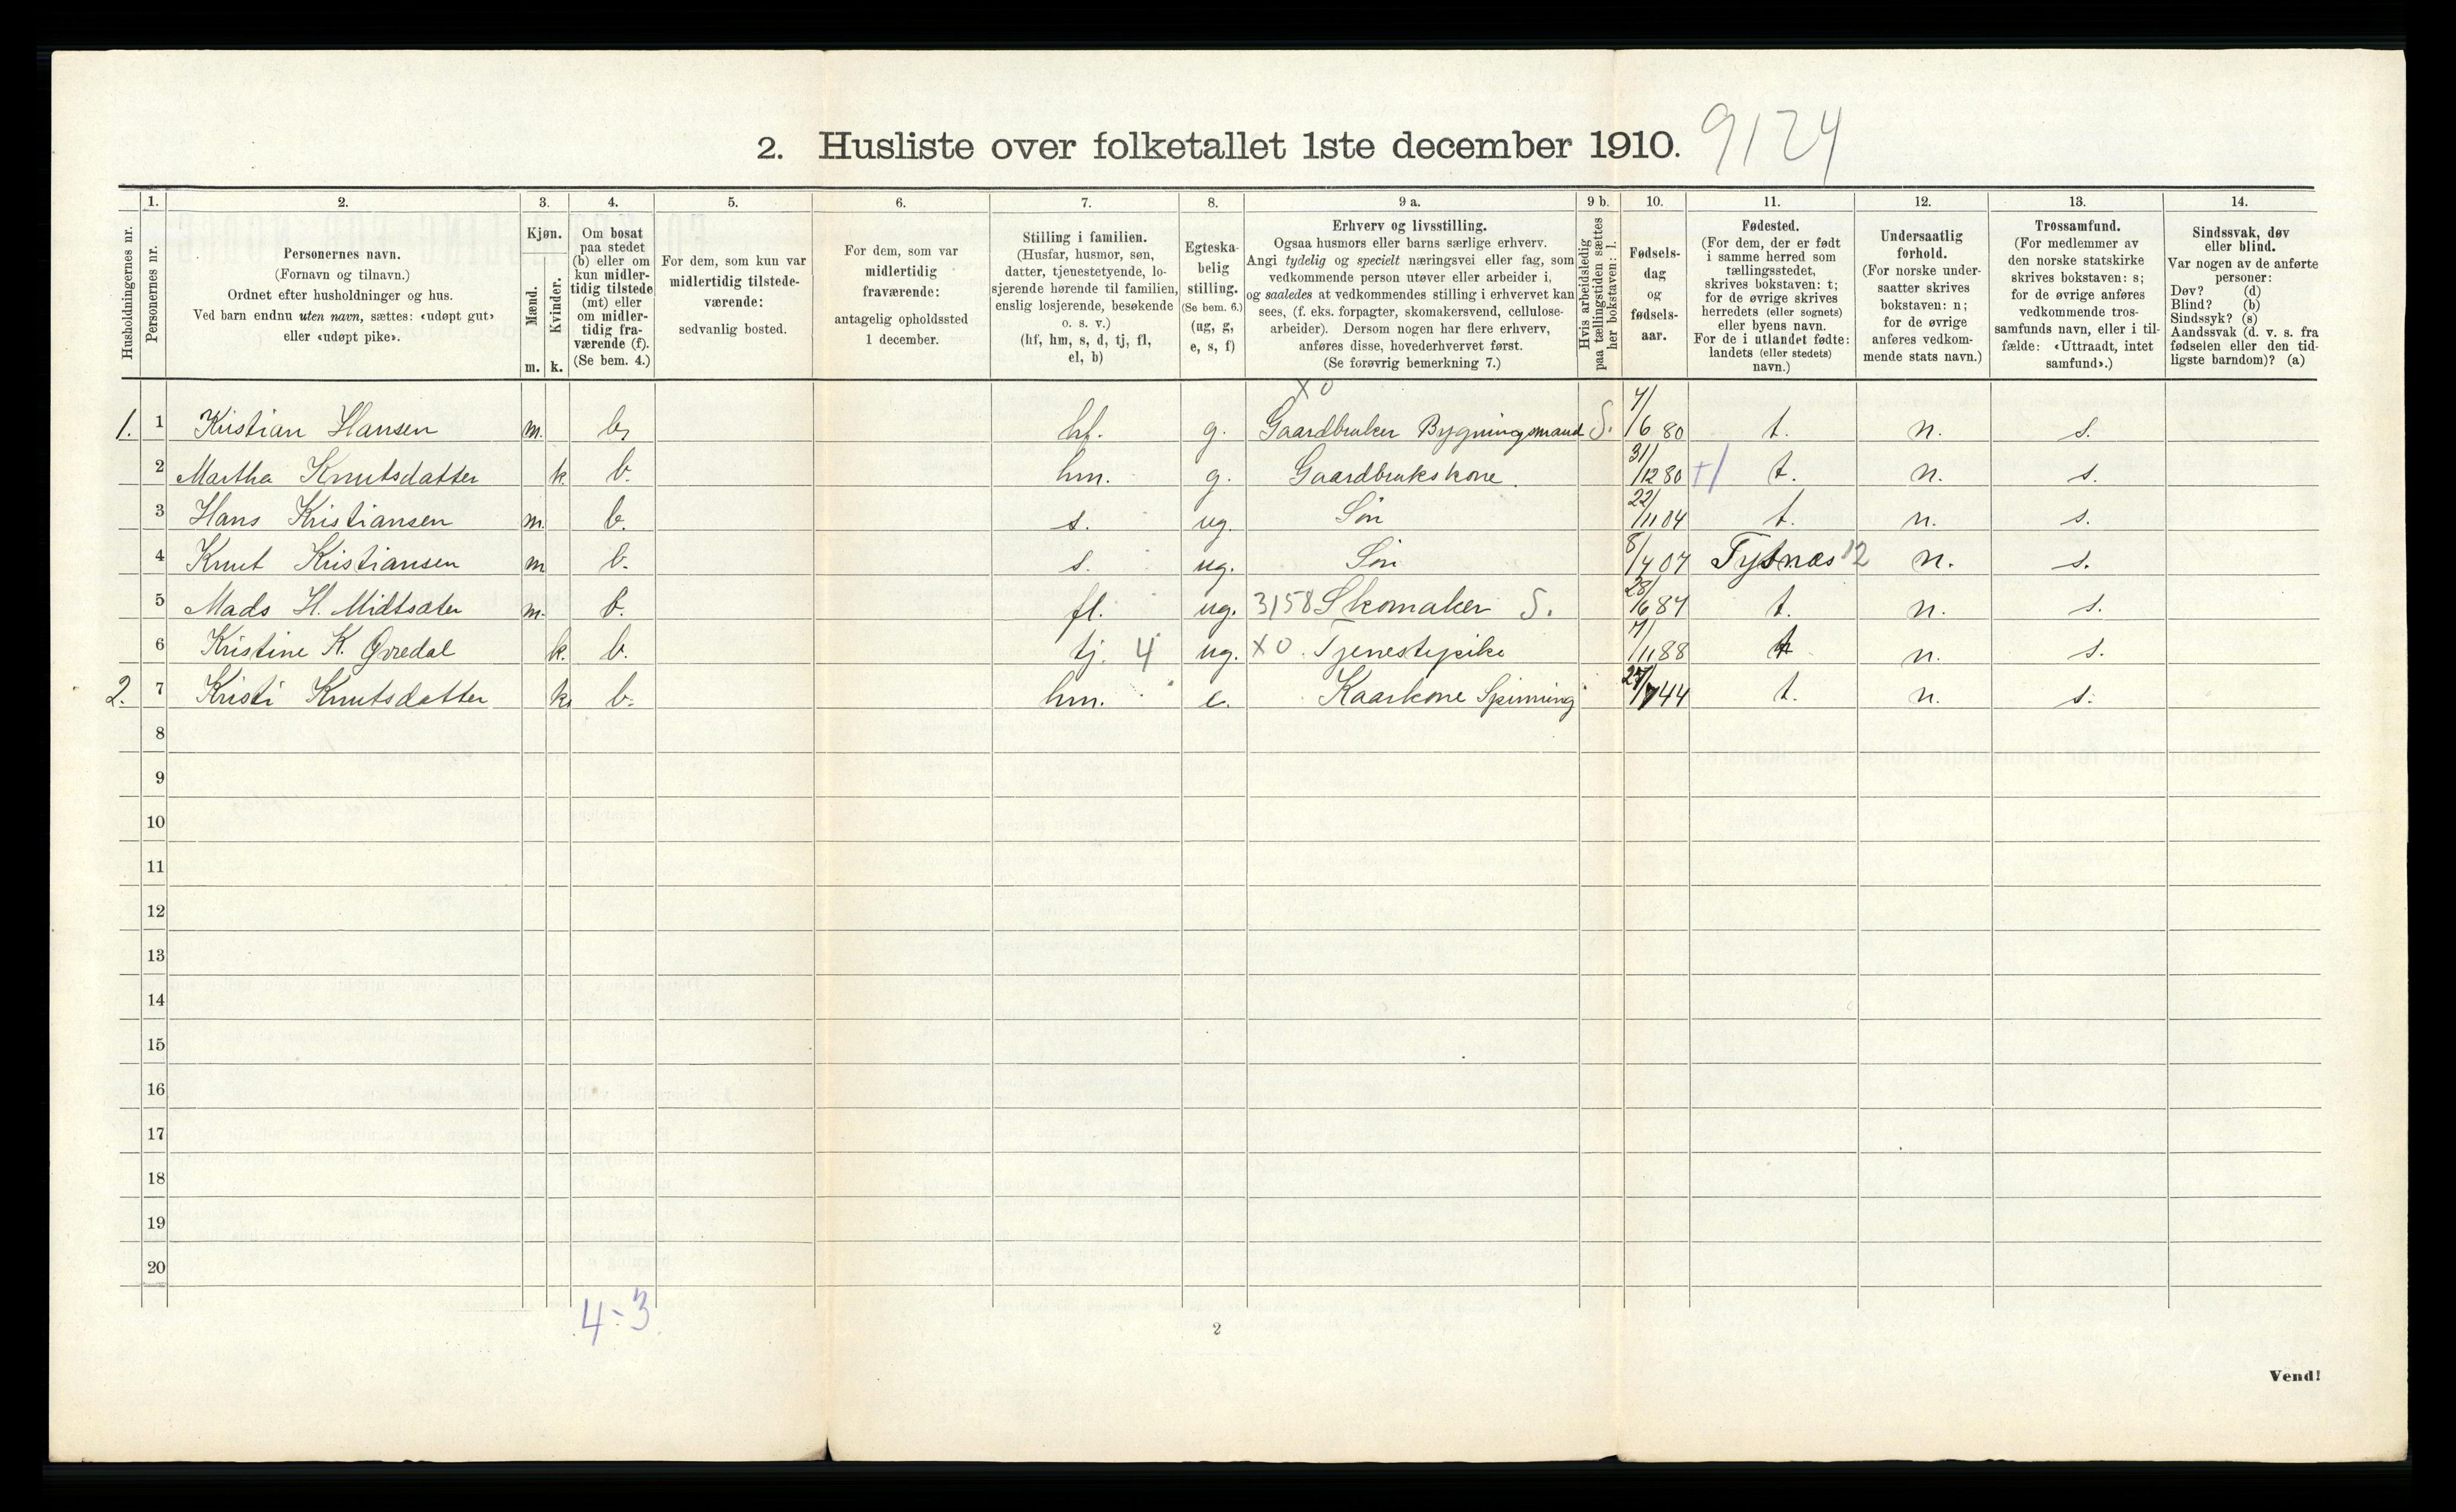 2. Husliste over folketallet 1ste december 1910. 9124
1. 2. 3. 4. 5. 6. 7. 8. 9 a. 9 b. 10. 11. 12. 13. 14.
Husholdningernes nr.
Personernes nr.
Personernes navn.
(Fornavn og tilnavn.)
Ordnet efter husholdninger og hus.
Ved barn endnu uten navn, sættes: «udøpt gut»
eller «udøpt pike».
Kjøn.
Mænd.
Kvinder.
m. k.
Om bosat
paa stedet
(b) eller om
kun midler-
tidig tilstede
(mt) eller
om midler-
tidig fra-
værende (f).
(Se bem. 4.)
For dem, som kun var
midlertidig tilstede-
værende:
sedvanlig bosted.
For dem, som var
midlertidig
fraværende:
antagelig opholdssted
1 december.
Stilling i familien.
(Husfar, husmor, søn,
datter, tjenestetyende, lo-
sjerende hørende til familien,
enslig losjerende, besøkende
o. s. v.)
(hf, hm, s, d, tj, fl,
el, b)
Egteska-
belig
stilling.
(Se bem. 6.)
(ug, g,
e, s, f)
Erhverv og livsstilling.
Ogsaa husmors eller barns særlige erhverv.
Angi tydelig og specielt næringsvei eller fag, som
vedkommende person utøver eller arbeider i,
og saaledes at vedkommendes stilling i erhvervet kan
sees, (f. eks. forpagter, skomakersvend, cellulose-
arbeider). Dersom nogen har flere erhverv,
anføres disse, hovederhvervet først.
(Se forøvrig bemerkning 7.)
Hvis arbeidsledig
paa tællingstiden sættes
her bokstaven: l.
Fødsels-
dag
og
fødsels-
aar.
Fødested.
(For dem, der er født
i samme herred som
tællingsstedet,
skrives bokstaven: t;
for de øvrige skrives
herredets (eller sognets)
eller byens navn.
For de i utlandet fødte:
landets (eller stedets)
navn.)
Undersaatlig
forhold.
(For norske under-
saatter skrives
bokstaven: n;
for de øvrige
anføres vedkom-
mende stats navn.)
Trossamfund.
(For medlemmer av
den norske statskirke
skrives bokstaven: s;
for de øvrige anføres
vedkommende tros-
samfunds navn, eller i til-
fælde: «Uttraadt, intet
samfund».)
Sindssvak, døv
eller blind.
Var nogen av de anførte
personer:
Døv? (d)
Blind? (b)
Sindssyk? (s)
Aandssvak (d. v. s. fra
fødselen eller den tid-
ligste barndom)? (a)
X 0
1. 1 Kristian Hansen m. b. hf. g. Gaardbruker Bygningsmand S. 7/6 80 t. n. s.
2 Martha Knutsdatter k. b. hm. g. Gaardbrukskone. 31/12 80 t. n. s.
3 Hans Kristiansen m. b. s. ug. Søn 22/11 04 t. n. s.
4 Knut Kristiansen m b. s. ug. Søn 8/4 07 Tysnes 12 n. s.
5 Mads H. Midtsæter m. b. fl. ug. 3158 Skomaker S. 28/6 87 t. n. s.
6 Kristine K. Øvredal k. b. tj. 4 ug. X 0. Tjenestepike 7/11 88 t n. s.
2. 7 Kristi Knutsdatter k. b. hm. e. Kaarkone Spinning 27/7 44 t. n. s.
8
9
10
11
12
13
14
15
16
17
18
19
20
4-3
2
Vend!